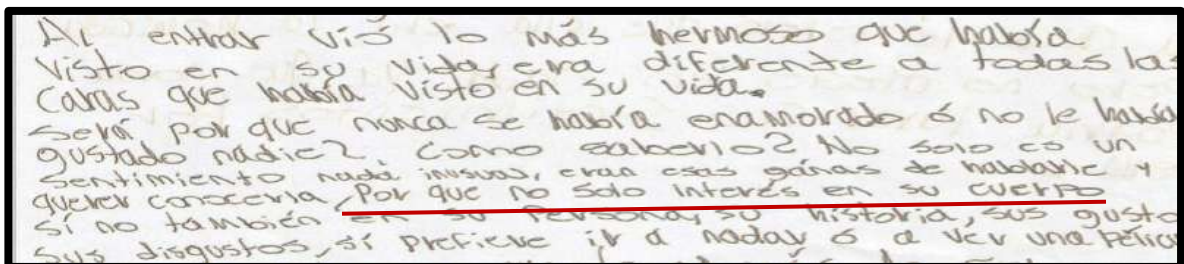 Al entrar vió lo más hermoso que había
visto en su vida, era diferente a todas las
caras que había visto en su vida.
será por que nunca se había enamorado ó no le había
gustado nadie?, como saberlo? No solo es un
sentimiento nada inusual, eran esas gánas de hablarle y
querer conocerla, Por que no solo interés en su cuerpo
sí no también en su persona, su historia, sus gusto
sus disgustos, sí prefiere ir a nadar ó a vér una Pélicu